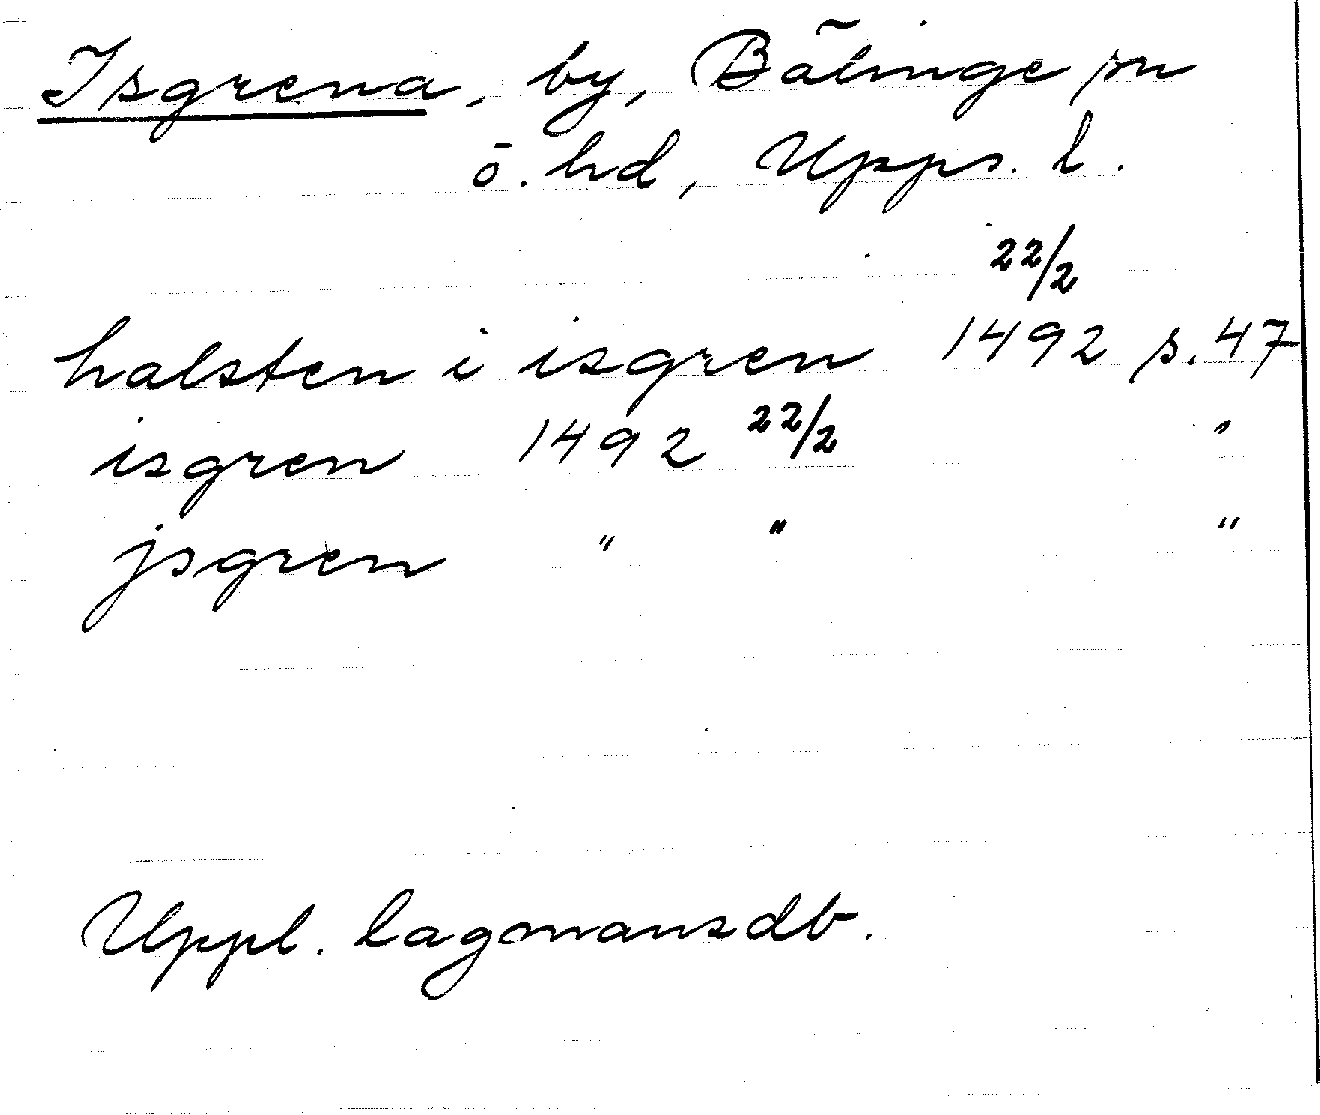 Isgrena, by, Bälinge sn
ö. hd, Upps. l.
22/2
halsten i isgren 1492 s. 47
isgren 1492 22/2 "
jsgren " " "
Uppl. lagmansdb.